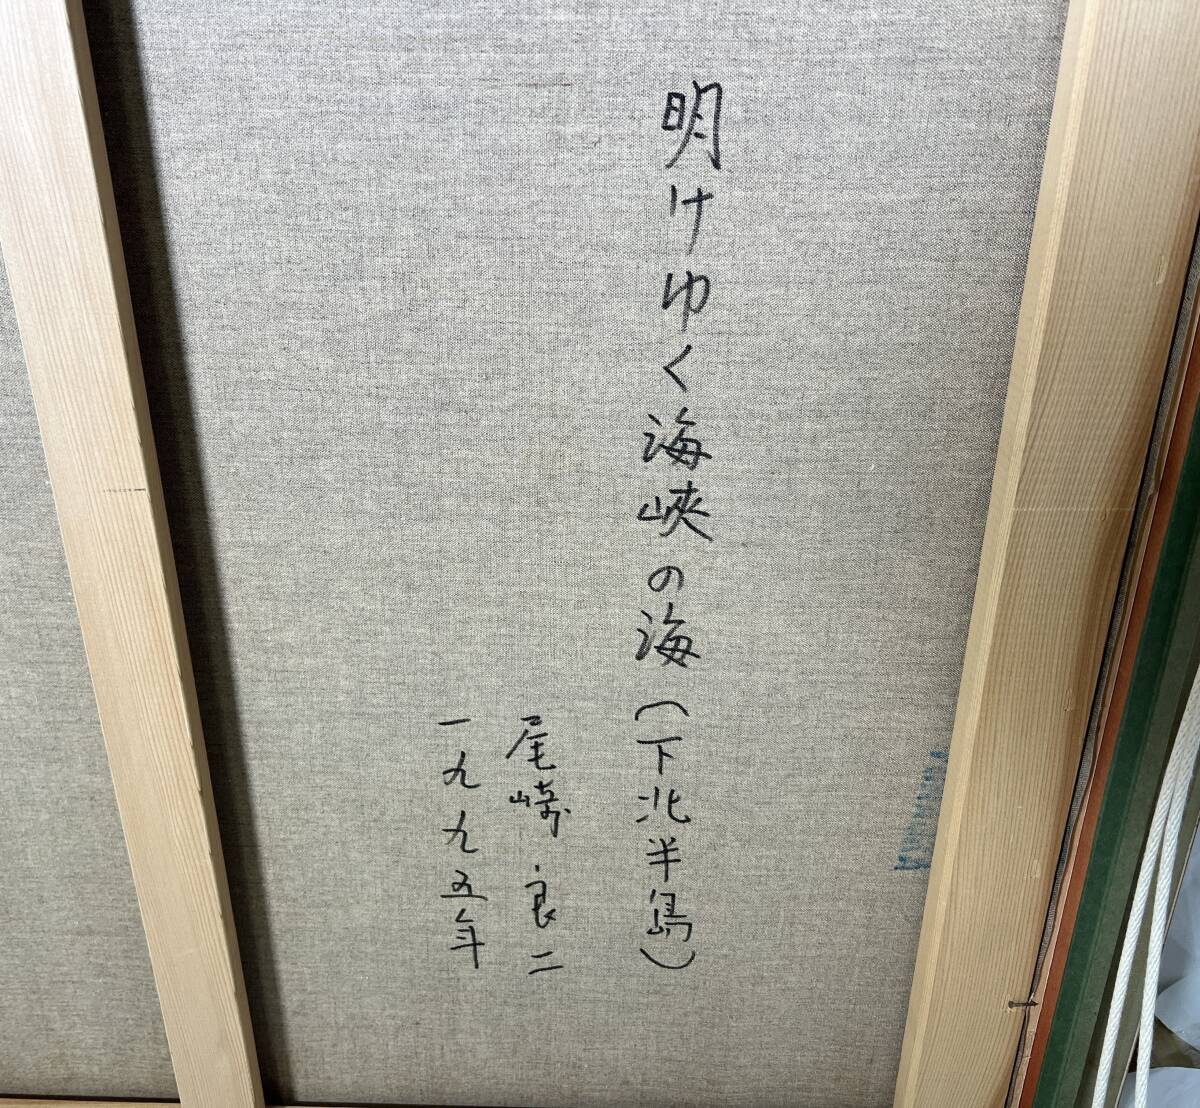 明けゆく海峡の海(下北半島)
尾崎良二
一九九五年